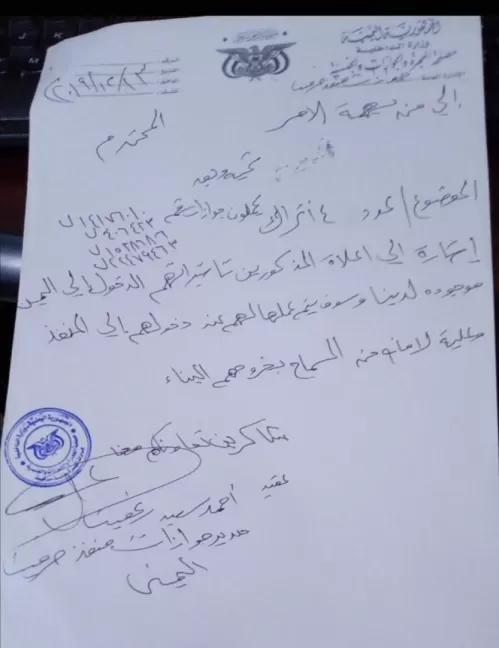 الجمهورية اليمنية
وزارة الداخلية
مصلحة الهجرة والجوازات والجنسية
٢٠١٩/١٢/٢٣
إلى من يهمه الامر
المحترم
تحيه وبعد
الموضوع / عدد ٤ أتراك يحملون جوازات رقم
إشارة الى اعلاة المذكورين تاشيراتهم الدخول الي اليمن
موجوده لدينا وسوف يتم عملها لهم عند دخولهم الي المنفذ
وعلية لا مانع من السماح بخروجهم الينا
شاكرين تعاونكم معنا
عقيد
أحمد سعيد
مدير جوازات منفذ صرفيت
اليمني